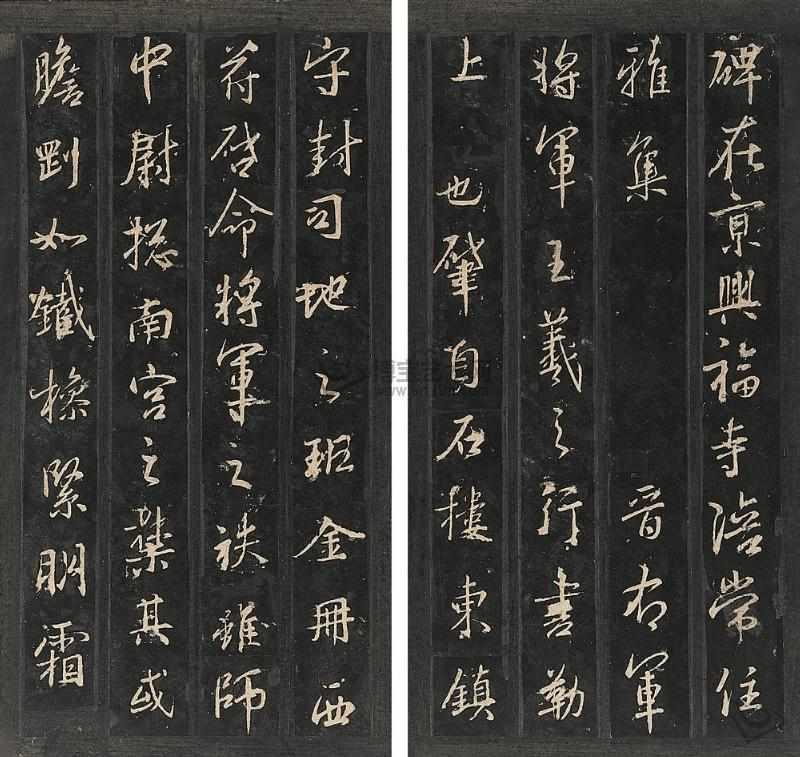 碑在京興福寺陪常住
雅集 晉右軍
將軍王羲之行書勒
上 也肇自石樓東鎮
守封司地之班金冊西
符啓命將軍之袟雖師
中尉揔南宮之禁其或
瞻㓻如鐵橡緊明霜